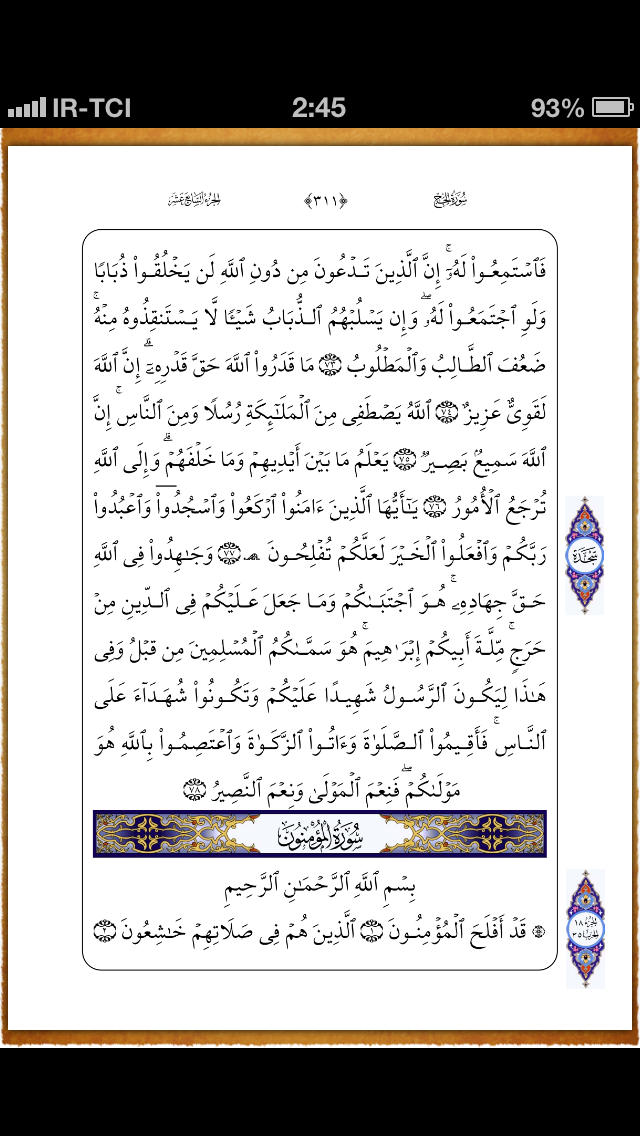 IR-TCI 2:45 93%
سُورَةُ الحَجِّ ﴿٣١١﴾ الجُزْءُ السَّابِعَ عَشَرَ
فَٱسۡتَمِعُواْ لَهُۥٓۚ إِنَّ ٱلَّذِينَ تَدۡعُونَ مِن دُونِ ٱللَّهِ لَن يَخۡلُقُواْ ذُبَابٗا
وَلَوِ ٱجۡتَمَعُواْ لَهُۥۖ وَإِن يَسۡلُبۡهُمُ ٱلذُّبَابُ شَيۡـٔٗا لَّا يَسۡتَنقِذُوهُ مِنۡهُۚ
ضَعُفَ ٱلطَّالِبُ وَٱلۡمَطۡلُوبُ ٧٣ مَا قَدَرُواْ ٱللَّهَ حَقَّ قَدۡرِهِۦٓۗ إِنَّ ٱللَّهَ
لَقَوِيٌّ عَزِيزٌ ٧٤ ٱللَّهُ يَصۡطَفِي مِنَ ٱلۡمَلَٰٓئِكَةِ رُسُلٗا وَمِنَ ٱلنَّاسِۚ إِنَّ
ٱللَّهَ سَمِيعُۢ بَصِيرٞ ٧٥ يَعۡلَمُ مَا بَيۡنَ أَيۡدِيهِمۡ وَمَا خَلۡفَهُمۡۗ وَإِلَى ٱللَّهِ
تُرۡجَعُ ٱلۡأُمُورُ ٧٦ يَٰٓأَيُّهَا ٱلَّذِينَ ءَامَنُواْ ٱرۡكَعُواْ وَٱسۡجُدُواْ وَٱعۡبُدُواْ
رَبَّكُمۡ وَٱفۡعَلُواْ ٱلۡخَيۡرَ لَعَلَّكُمۡ تُفۡلِحُونَ ۩ ٧٧ وَجَٰهِدُواْ فِي ٱللَّهِ
سَجْدَة
حَقَّ جِهَادِهِۦۚ هُوَ ٱجۡتَبَىٰكُمۡ وَمَا جَعَلَ عَلَيۡكُمۡ فِي ٱلدِّينِ مِنۡ
حَرَجٖۚ مِّلَّةَ أَبِيكُمۡ إِبۡرَٰهِيمَۚ هُوَ سَمَّىٰكُمُ ٱلۡمُسۡلِمِينَ مِن قَبۡلُ وَفِي
هَٰذَا لِيَكُونَ ٱلرَّسُولُ شَهِيدًا عَلَيۡكُمۡ وَتَكُونُواْ شُهَدَآءَ عَلَى
ٱلنَّاسِۚ فَأَقِيمُواْ ٱلصَّلَوٰةَ وَءَاتُواْ ٱلزَّكَوٰةَ وَٱعۡتَصِمُواْ بِٱللَّهِ هُوَ
مَوۡلَىٰكُمۡۖ فَنِعۡمَ ٱلۡمَوۡلَىٰ وَنِعۡمَ ٱلنَّصِيرُ ٧٨
سُورَةُ المُؤۡمِنُونَ
بِسۡمِ ٱللَّهِ ٱلرَّحۡمَٰنِ ٱلرَّحِيمِ
۞ قَدۡ أَفۡلَحَ ٱلۡمُؤۡمِنُونَ ١ ٱلَّذِينَ هُمۡ فِي صَلَاتِهِمۡ خَٰشِعُونَ ٢
الجزء ١٨
الحزب ٣٥